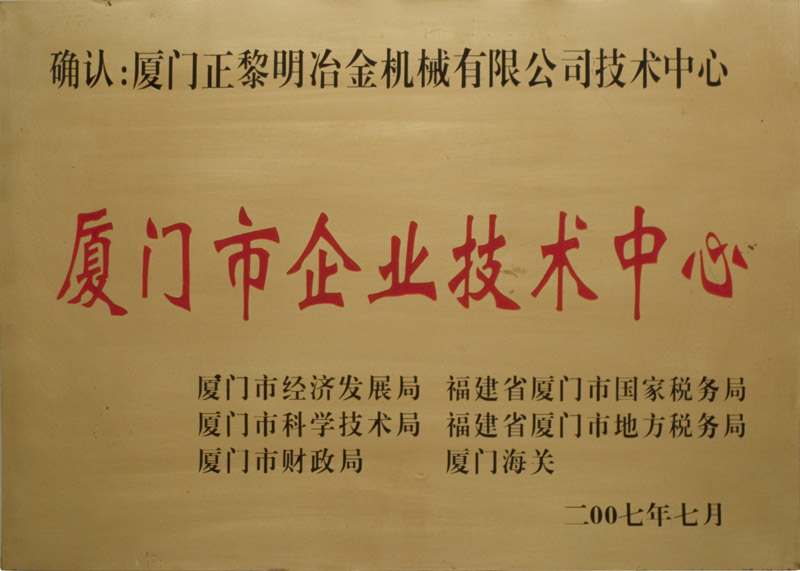 确认:厦门正黎明冶金机械有限公司技术中心
厦门市企业技术中心
厦门市经济发展局 福建省厦门市国家税务局
厦门市科学技术局 福建省厦门市地方税务局
厦门市财政局 厦门海关
二00七年七月